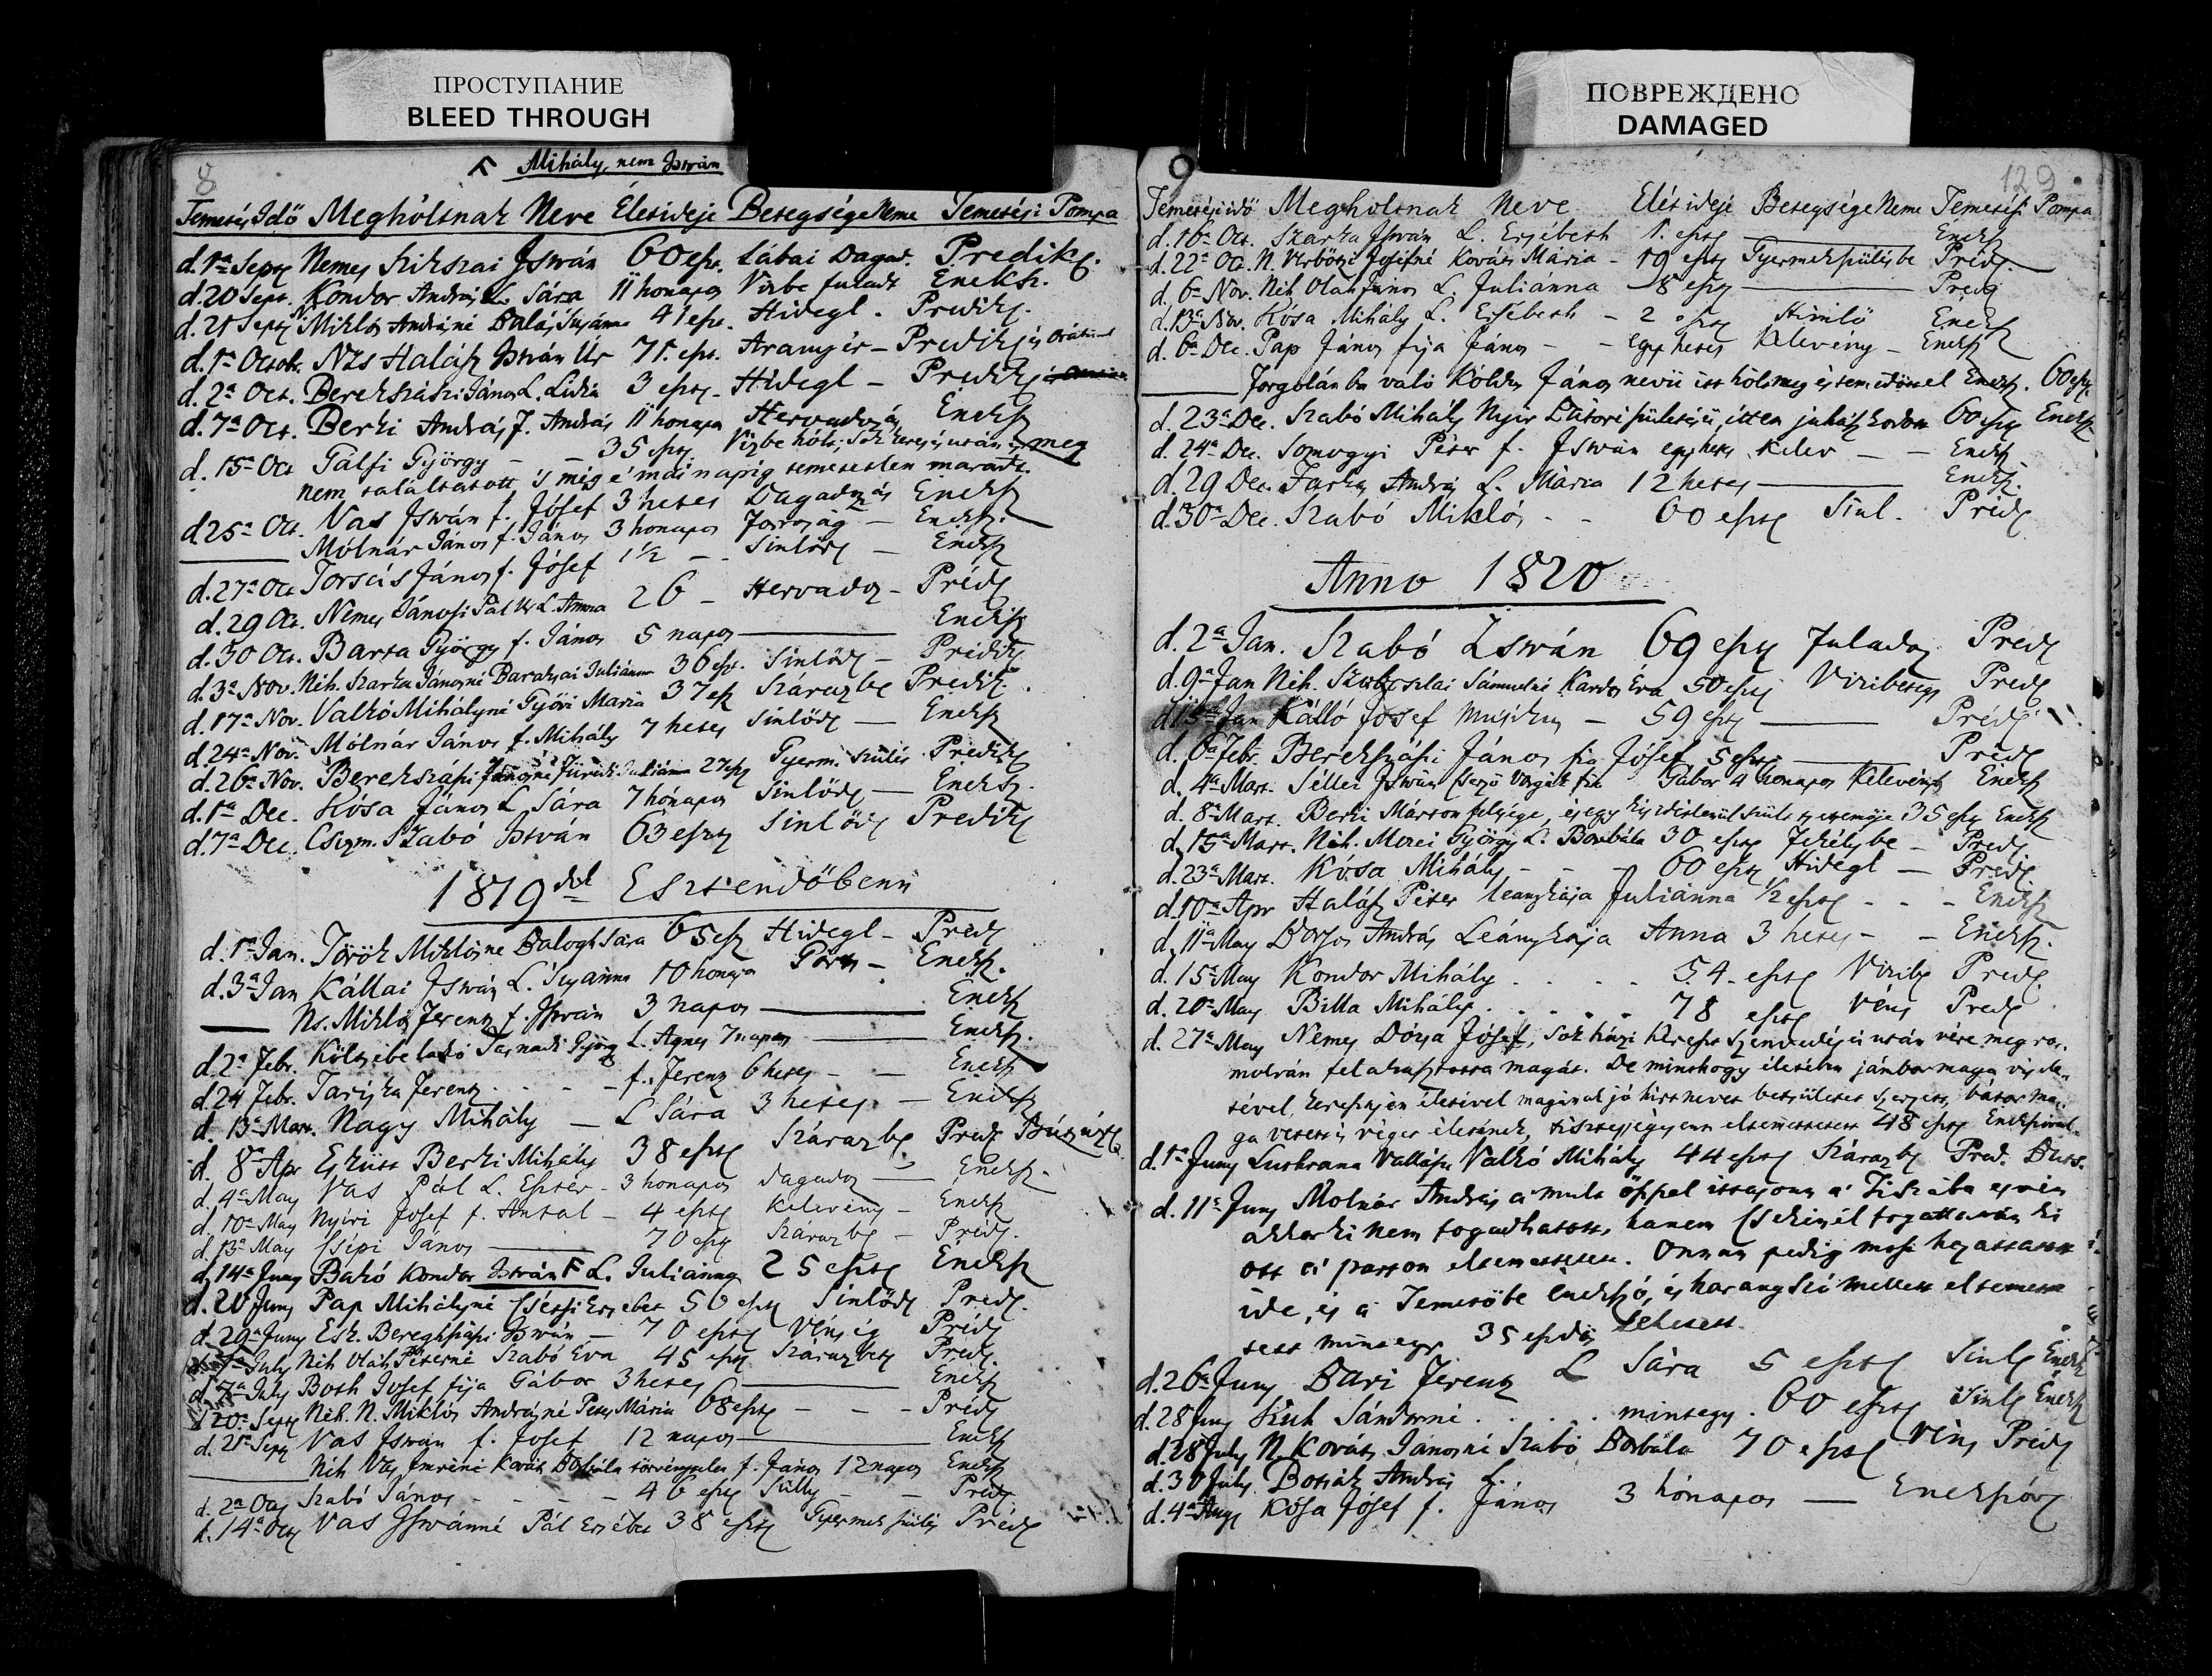 ПРОСТУПАНИЕ
BLEED THROUGH
F Mihály, nem István
8
Temetés Idő Meghóltnak Neve Életideje Betegsége Neme Temetési Pompa
d. 1a Sept Nemes Szikszai István 60 eszt. Lábai Dagad. Predikc.
d. 20 Sept. Kondor András L. Sára 11 honapos Vizbe fuladt Eneksz.
d. 21 Sept N. Miklós Andrásné Balás Susánna 41 esz. Hidegl. Predik.
d. 1a Octob. Nzs Halász István Úr 71. esz. Aranyér - Predik és Orátio
d. 2a Oct. Berekszászi János L. Lidia 3 eszt. Hidegl - Predik
d. 7a Oct. Berki András f. András 11 honapos Hervadozás Eneksz
d. 15a Oct Pálfi György - - 35 eszt. Vizbe hólt, sok keresés után is meg
nem találtatott 's még e' mái napig temetetlen maradt.
d. 25a Oct. Vas István f. Jósef 3 hetes Dagadozás Eneksz
Mólnár János f. János 3 honapos Forróság - Eneksz.
d. 27a Oct János f. Jósef 1 1/2 - Sinlőd - Eneksz
d. 29 Oct. Nemes Jánosi Pál Úr L. Anna 26 - Hervadoz - Préd
d. 30 Oct. Barta György f. János 5 napos Eneksz
d. 3a Nov. Néh. Szarka Jánosné Juliánna 36 esz. Sinlőd - Prédik
d. 17a Nov. Valkó Mihályné Győri Maria 37 esz Szárazbe Predik.
d. 24a Nov. Mólnár János f. Mihály 7 hetes Sinlőd - Eneksz
d. 26a Nov. Berekszászi Jánosné Juliánna 27 esz Gyerm. szülés Predik
d. 1a Dec. Kósa János L. Sára 7 hónapos Sinlőd - Eneksz.
d. 7a Dec. Csizm. Szabó István 63 eszt Sinlőd Predik
1819dik Esztendőbenn
d. 1a Jan. Török Miklósné Balogh Sára 65 esz Hidegl - Préd
d. 3a Jan Kállai István L. Susánna 10 honapos - Eneksz.
Ns. Miklós Ferentz f. István 3 napos Eneksz
d. 2a Febr. Költsébe lakó Tasnádi György L. Agnes 7 napos Eneksz.
d. 24 Febr. Ferentz - f. Ferenz 6 hetes - - Eneksz
d. 13a Mart. Nagy Mihály - L Sára 3 hetes - Eneksz
d. 8a Apr Esküit Berki Mihály 38 eszt Szárazbe Préd Bútsúzt
d. 4a May Vas Pál L. Eszter - 3 honapos dagadoz - Eneksz.
d. 10a May Nyiri Josef f. Antal - 4 eszt Kelevény - Eneksz
d. 13a May Csépi János 70 eszt Szárazbe - Préd.
d. 14a Juny Bakó Kondor István F L. Juliánna 25 eszt Eneksz
d. 20 Juny Pap Mihályné Ersébet 50 eszt Sinlőd Préd.
d. 29a Juny Esk. Bereghszászi István - 70 eszt Vénség Préd
July Néh Oláh Péterné Szabó Eva 45 eszt Szárazbet Préd.
d. 7a July Both Josef fija Gábor 3 hetes Eneksz
d. 20a Sept Néh. N. Miklós Andrásné Mária 68 eszt - - Préd
d. 21a Sept Vas István f. Josef 12 napos Eneksz
Néh Vas Imréné Kováts Borbála törvénytelen f. János 12 napos Eneksz
d. 2a Oct Szabó János - - - - 46 eszt Sülly - - Préd
d. 14a Oct Vas Istvánné Pál Ersébet 38 eszt Gyermek szülés Préd
ПОВРЕЖДЕНО
DAMAGED
9
129
Temetési idő Meghóltnak Neve Élet ideje Betegsége Neme Temetési Pompa
d. 16a Oct. Szarka István L. Ersébeth 1. eszt Eneksz
d. 22a Oct. N. Verbőtzi Josefné Kováts Mária - 19 eszt Gyermekszülésbe Préd.
d. 6a Nov. Néh Oláh János L. Juliánna - 8 eszt Préd
d. 13a Nov. Kósa Mihály L. Ersébeth - 2 eszt Himlő Eneksz
d. 6a Dec. Pap János fija János - - egy hetes Kelevény - Eneksz
Torgolánba való Kóldus János nevü itt hólt meg és temetődött el Eneksz. 60 eszt.
d. 23a Dec. Szabó Mihály Nyir Bátori születésü, itten juhászkodott 60 eszt Eneksz
d. 24a Dec. Somogyi Péter f. István egy hetes Kelev - - Eneksz
d. 29 Dec. Farkas András L. Mária 12 hetes Eneksz.
d. 30a Dec. Szabó Miklós - - 60 eszt Sinl. Préd
Anno 1820
d. 2a Jan. Szabó István 69 eszt Fuladoz Préd
d. 9a Jan Néh. Sámuelné Kardos Éva 50 eszt Vizibetegs Préd
d. 15a Jan Kálló Josef - 59 eszt Préd
d. 6a Febr. Berekszászi János fia Jósef 5 eszt Préd
d. 4a Mart. Séllei István fia Gábor 4 honapos Kelevény Eneksz
d. 8a Mart. Berki Márton felesége, és egy kis idétlenül szület gyermeke 35 eszt Eneksz
d. 15a Mart. Néh. Mérei György L. Borbála 30 eszt Fekélybe - Préd
d. 23a Mart. Kósa Mihály - - - 60 eszt Hidegl - Préd
d. 10a Apr Halász Péter leányzója Juliánna 1/2 eszt - - - Eneksz
d. 11a May András Leánykája Anna 3 hetes - - Eneksz.
d. 15a May Kondor Mihály . . . . 54. eszt Vizibe Préd.
d. 20a May Billa Mihály . . . . 78 eszt Véns Préd
d. 27a May Nemes Dósa Jósef, sok házi kereszt szenvedései után vére meg ro-
molván felakasztotta magát. De minthogy életében jámbor maga vise-
tével, keresztyén életével magának jó hirt nevet betsületet szerzett, bátor ma-
ga vetett is véget életének, tisztességesenn eltemettetett 48 eszt Enekszóval.
d. 1a Juny Luthrana Vallásu Valkó Mihály 44 eszt Szárazbe Préd. Buts.
d. 11a Juny Molnár András a' mult öszszel ittasonn a' Tiszába esvén
akkor ki nem fogadhatott, hanem Csekénél fogattatván ki
ott a' parton eltemettetett. Onnan pedig most hozattatott
ide, és a' Temetőbe énekszó, és harangszó mellett eltemet-
tett mintegy 35 esztős lehetett.
d. 26a Juny Bari Ferentz L Sára 5 eszt Sinl Eneksz
d. 28 Juny Sándorné . . . . mintegy . 60 eszt Sinl Eneksz
d. 28 July N. Kováts Jánosné Szabó Borbála 70 eszt Véns Préd
d. 30 July András L.
d. 4a Aug Kósa Jósef f. János 3 hónapos - Enekszóv